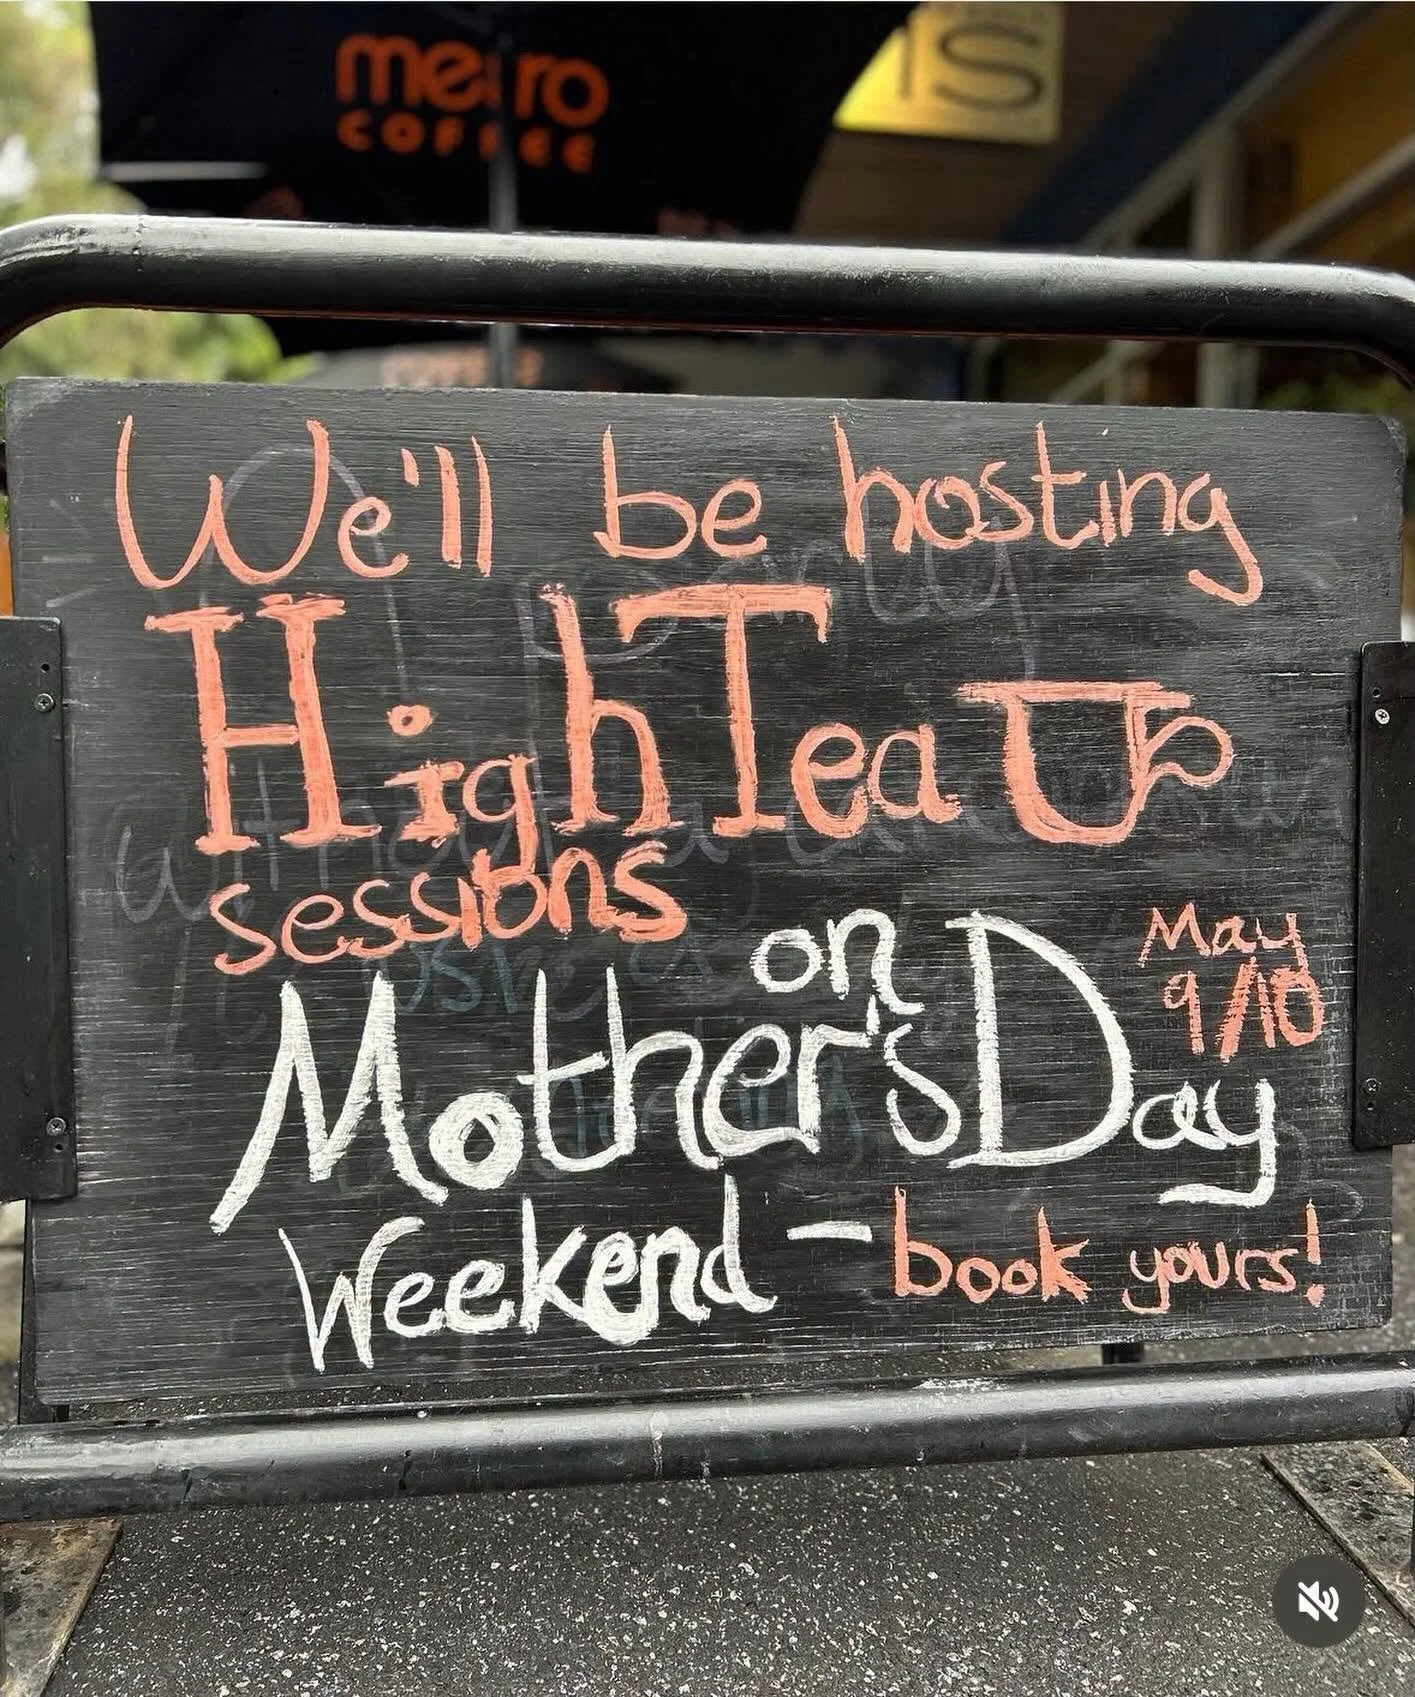 metro
COFFEE
IS
We'll be hosting
High Tea
sessions
on
May
9/10
Mother's Day
Weekend - book yours!